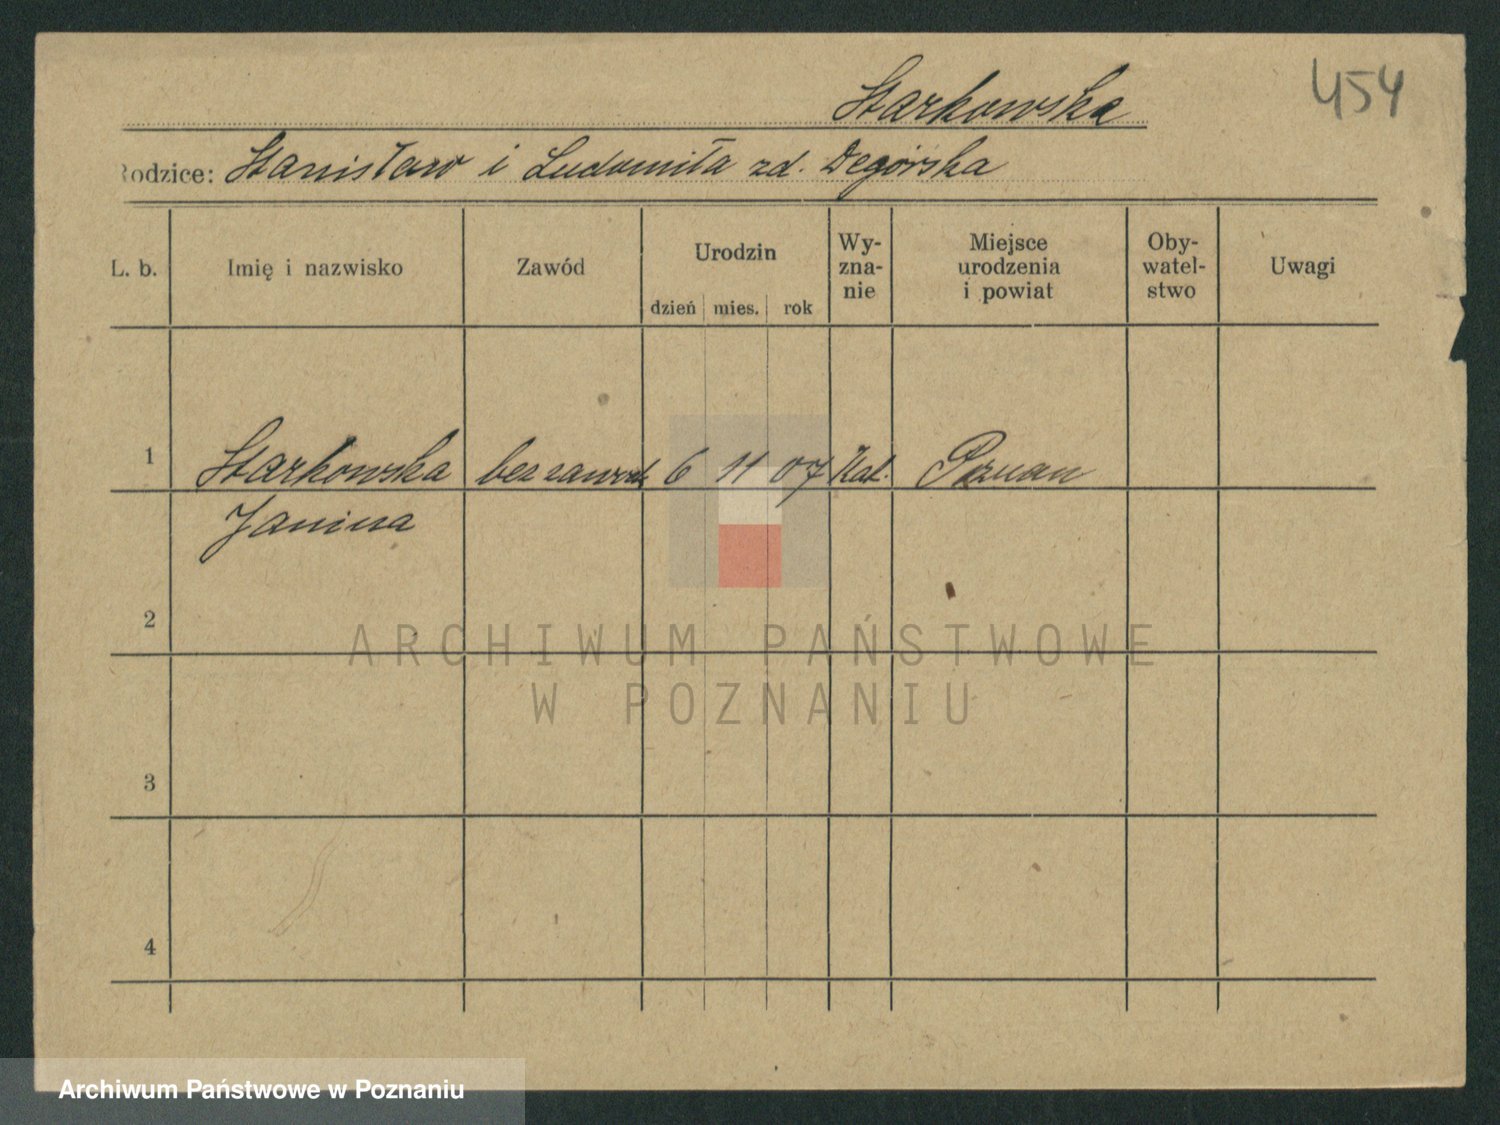 454
Starkowska
Rodzice: Stanisław i Ludomiła zd. Degórska
L. b. Imię i nazwisko Zawód Urodzin dzień mies. rok Wy-zna-nie Miejsce urodzenia i powiat Oby-watel-stwo Uwagi
1 Starkowska bez zawodu 6 11 07 Kat. Poznan
Janina
2
ARCHIWUM PAŃSTWOWE
W POZNANIU
3
4
Archiwum Państwowe w Poznaniu